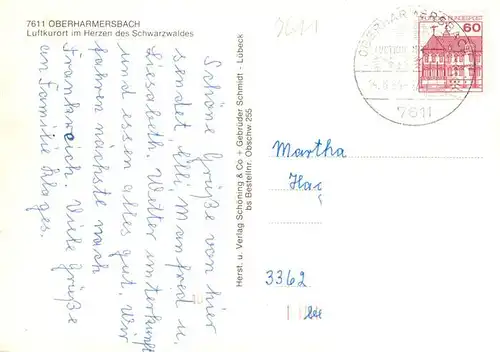 7611 OBERHARMERSBACH
Luftkurort im Herzen des Schwarzwaldes
Schöne Grüße von hier
sendet Elli, Manfred u.
Liesabeth. Wetter unterkunft
und essen alles gut. Wir
fahren nächste nach
Frankreich. Viele Grüße
an Familie Klages.
Herst. u. Verlag Schöning & Co + Gebrüder Schmidt - Lübeck
bs Bestellnr. Obschw 255
9611
OBERHARMERSBACH
7611
60
Martha
Hag
3362